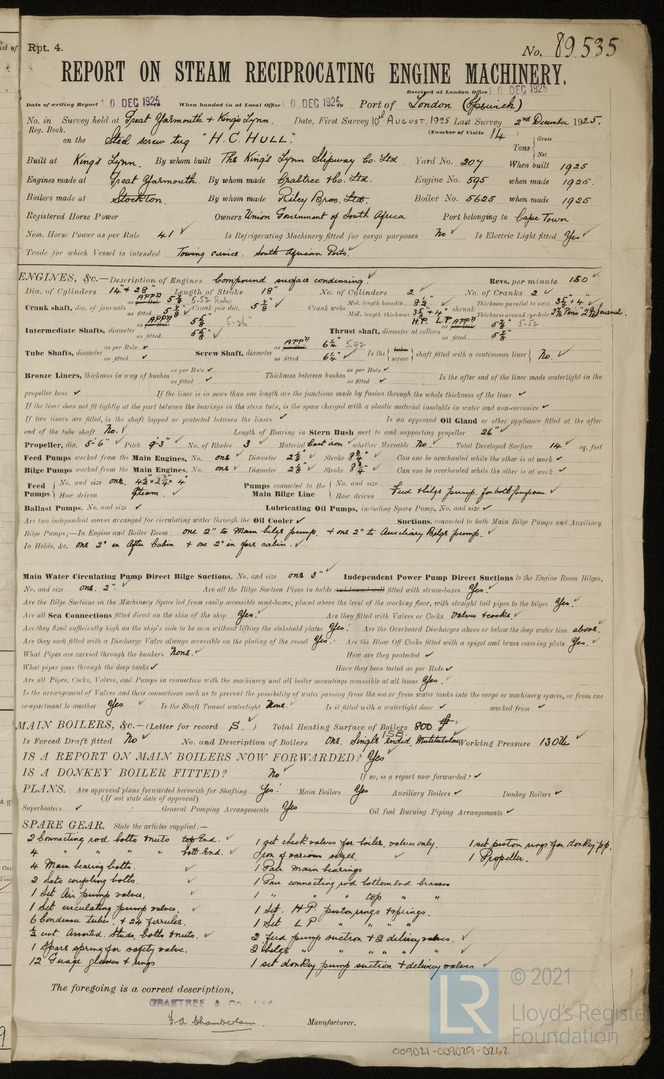 Rpt. 4.
No. 89535
REPORT ON STEAM RECIPROCATING ENGINE MACHINERY.
Received at London Office 10 DEC 1925
Date of writing Report 10 DEC 1925 When handed in at Local Office 10 DEC 1925 Port of London (Ipswich)
No. in Survey held at Great Yarmouth & King's Lynn. Date, First Survey 10th August, 1925 Last Survey 2nd December 1925.
Reg. Book. (Number of Visits 14)
on the Steel screw tug "H.C. HULL". Tons Gross Net
Built at King's Lynn. By whom built The King's Lynn Slipway Co. Ltd. Yard No. 207 When built 1925
Engines made at Great Yarmouth. By whom made Crabtree & Co. Ltd. Engine No. 595 when made 1925.
Boilers made at Stockton. By whom made Riley Bros. Ltd. Boiler No. 5625 when made 1925
Registered Horse Power Owners Union Government of South Africa Port belonging to Cape Town
Nom. Horse Power as per Rule 41 ✓ Is Refrigerating Machinery fitted for cargo purposes No ✓ Is Electric Light fitted Yes ✓
Trade for which Vessel is intended Towing service. South African Ports.
ENGINES, &c.—Description of Engines Compound surface condensing. ✓ Revs. per minute 150
Dia. of Cylinders 14" & 28" Length of Stroke 18" No. of Cylinders 2 No. of Cranks 2 ✓
Crank shaft, dia. of journals as APPD 5⅝ 5.52 Rule as fitted Crank pin dia. Crank webs Mid. length breadth Mid. length thickness shrunk Thickness parallel to axis Thickness around eyehole
Intermediate Shafts, diameter as APPD as fitted Thrust shaft, diameter at collars as APPD as fitted 5.52
Tube Shafts, diameter as per Rule as fitted Screw Shaft, diameter as APPD 6½" 5.92 as fitted 6½" Is the tube screw shaft fitted with a continuous liner No.
Bronze Liners, thickness in way of bushes as per Rule as fitted Thickness between bushes as per Rule as fitted Is the after end of the liner made watertight in the
propeller boss ✓ If the liner is in more than one length are the junctions made by fusion through the whole thickness of the liner ✓
If the liner does not fit tightly at the part between the bearings in the stern tube, is the space charged with a plastic material insoluble in water and non-corrosive ✓
If two liners are fitted, is the shaft lapped or protected between the liners ✓ Is an approved Oil Gland or other appliance fitted at the after
end of the tube shaft No. Length of Bearing in Stern Bush next to and supporting propeller 26"
Propeller, dia. 5'-6" Pitch 9'-3" No. of Blades 3 Material Cast iron whether Moveable No. Total Developed Surface 14 sq. feet
Feed Pumps worked from the Main Engines, No. one Diameter 2½" Stroke Can one be overhauled while the other is at work ✓
Bilge Pumps worked from the Main Engines, No. one Diameter 2½" Stroke Can one be overhauled while the other is at work ✓
Feed Pumps No. and size one. How driven Steam. Pumps connected to the Main Bilge Line No. and size How driven Feed & bilge pump. for both purposes
Ballast Pumps, No. and size ✓ Lubricating Oil Pumps, including Spare Pump, No. and size ✓
Are two independent means arranged for circulating water through the Oil Cooler ✓ Suctions, connected to both Main Bilge Pumps and Auxiliary
Bilge Pumps;—In Engine and Boiler Room one 2" to Main bilge pump. & one 2" to Auxiliary Bilge pump.
In Holds, &c. one 2" in after Cabin & one 2" in fore cabin.
Main Water Circulating Pump Direct Bilge Suctions, No. and size one 3" Independent Power Pump Direct Suctions to the Engine Room Bilges,
No. and size one. 2" Are all the Bilge Suction Pipes in holds fitted with strum-boxes Yes
Are the Bilge Suctions in the Machinery Space led from easily accessible mud-boxes, placed above the level of the working floor, with straight tail pipes to the bilges Yes.
Are all Sea Connections fitted direct on the skin of the ship Yes. Are they fitted with Valves or Cocks valves & cocks
Are they fixed sufficiently high on the ship's side to be seen without lifting the stokehold plates Yes. Are the Overboard Discharges above or below the deep water line above.
Are they each fitted with a Discharge Valve always accessible on the plating of the vessel Yes. Are the Blow Off Cocks fitted with a spigot and brass covering plate Yes.
What Pipes are carried through the bunkers None. How are they protected ✓
What pipes pass through the deep tanks ✓ Have they been tested as per Rule ✓
Are all Pipes, Cocks, Valves, and Pumps in connection with the machinery and all boiler mountings accessible at all times Yes.
Is the arrangement of Valves and their connections such as to prevent the possibility of water passing from the sea or from water tanks into the cargo or machinery spaces, or from one
compartment to another Yes Is the Shaft Tunnel watertight None. Is it fitted with a watertight door ✓ worked from ✓
MAIN BOILERS, &c.—(Letter for record S. ) Total Heating Surface of Boilers 800
Is Forced Draft fitted No ✓ No. and Description of Boilers One. Single Ended, Multitubular Working Pressure 130 lb
IS A REPORT ON MAIN BOILERS NOW FORWARDED? Yes
IS A DONKEY BOILER FITTED? No ✓ If so, is a report now forwarded? ✓
PLANS. Are approved plans forwarded herewith for Shafting Yes. Main Boilers Yes Auxiliary Boilers ✓ Donkey Boilers ✓
(If not state date of approval)
Superheaters ✓ General Pumping Arrangements Yes Oil fuel Burning Piping Arrangements ✓
SPARE GEAR. State the articles supplied:—
2 Connecting rod bolts & nuts top End. ✓ 1 set check valves for boiler, valves only. 1 set piston rings for donkey pp.
4 " rod " bott End. ✓ Iron of various sizes. 1 Propeller.
4 Main bearing bolts. 1 Pair Main bearings
2 Sets coupling bolts. 1 Pair connecting rod bottom end brasses
1 Set Air pump valves. 1 " " " top " "
1 Set circulating pump valves. 1 Set. H.P. piston rings & springs.
6 Condenser tubes & 24 ferrules. 1 Set L.P " " "
½ cwt. Assorted Studs, bolts & nuts. ✓ 2 feed pump suction & 2 delivery valves. ✓
1 Spare spring for safety valve. 2 bilge " " " "
12 Guage glasses & rings 1 set donkey pump suction & delivery valves
The foregoing is a correct description,
CRABTREE & Co. Ltd.
F A Chamberlain. Manufacturer.
© 2021
LR
Lloyd's Register
Foundation
009021-009029-0262